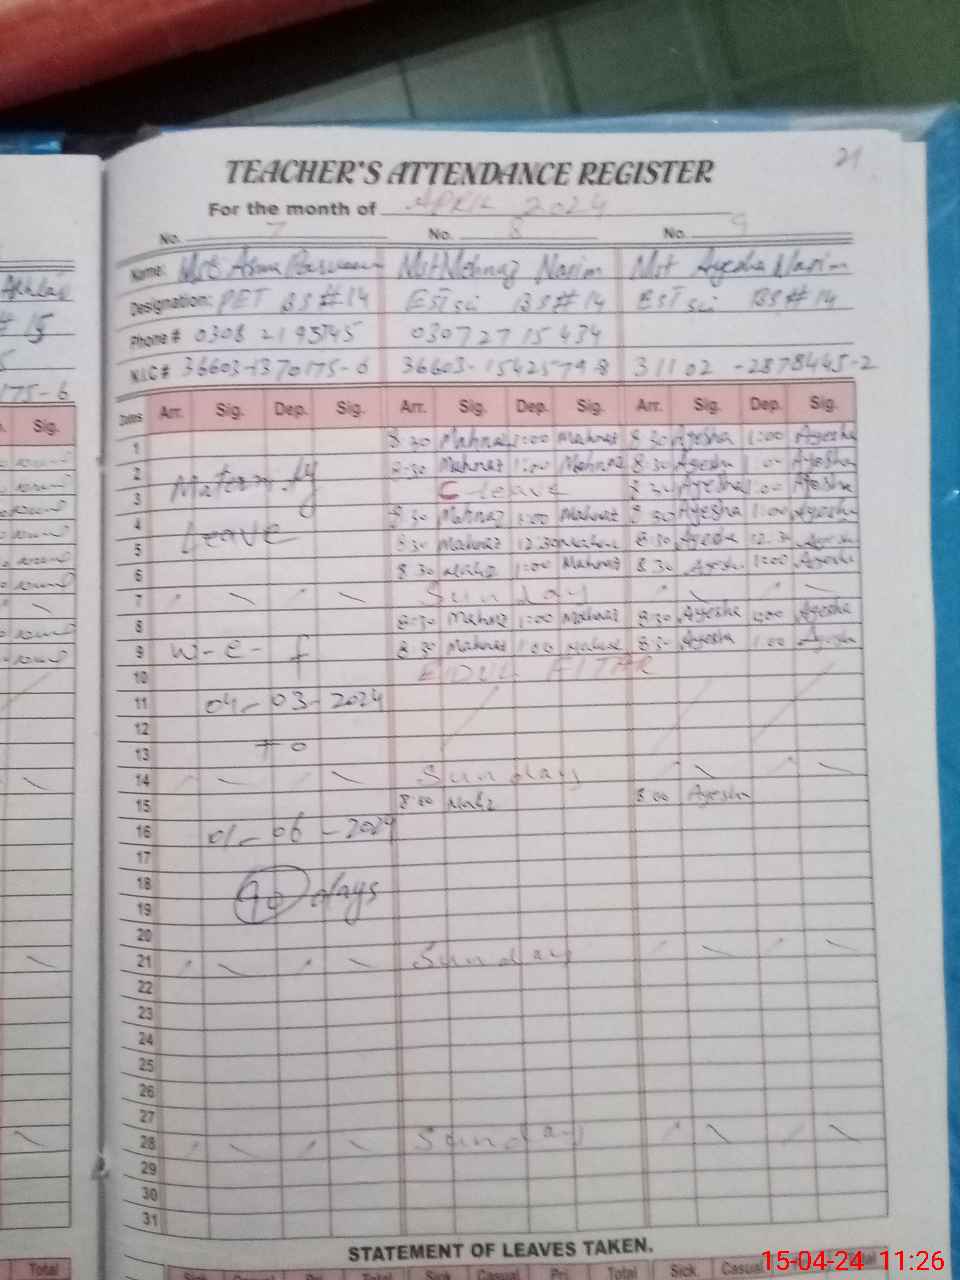 21
TEACHER'S ATTENDANCE REGISTER
For the month of APRIL 2024
No. 7 No. 8 No. 9
Name: Mst Asma Parveen Mst Mehnaz Nasim Mst Ayesha Nasim
Designation: PET BS#14 EST sci BS#14 EST sci BS#14
Phone # 0308 2193745 0307 27 15 434
N.I.C # 36603-1370175-6 36603-1542579-8 31102-2878445-2
Dates Arr. Sig. Dep. Sig. Arr. Sig. Dep. Sig. Arr. Sig. Dep. Sig.
1 8:30 Mahnaz 1:00 Mahnaz 8:30 Ayesha 1:00 Ayesha
2 8:30 Mahnaz 1:00 Mahnaz 8:30 Ayesha 1:00 Ayesha
3 Maternity C-leave 8:30 Ayesha 1:00 Ayesha
4 8:30 Mahnaz 1:00 Mahnaz 8:30 Ayesha 1:00 Ayesha
5 Leave 8:30 Mahnaz 12:30 Mahnaz 8:30 Ayesha 12:30 Ayesha
6 8:30 Mahz 1:00 Mahnaz 8:30 Ayesha 1:00 Ayesha
7 Sunday
8 8:30 Mahnaz 1:00 Mahnaz 8:30 Ayesha 1:00 Ayesha
9 w-e-f 8:30 Mahnaz 1:00 Mahnaz 8:30 Ayesha 1:00 Ayesha
10 EIDUL FITAR
11 04-03-2024
12
13 to
14 Sundays
15 8:00 Mahz 8:00 Ayesha
16 01-06-2024
17
18 90 days
19
20
21 Sunday
22
23
24
25
26
27
28 Sunday
29
30
31
STATEMENT OF LEAVES TAKEN.
Sick Casual Total Sick Casual Total Sick Casual
15
175-6
Sig.
Total
15-04-24 11:26